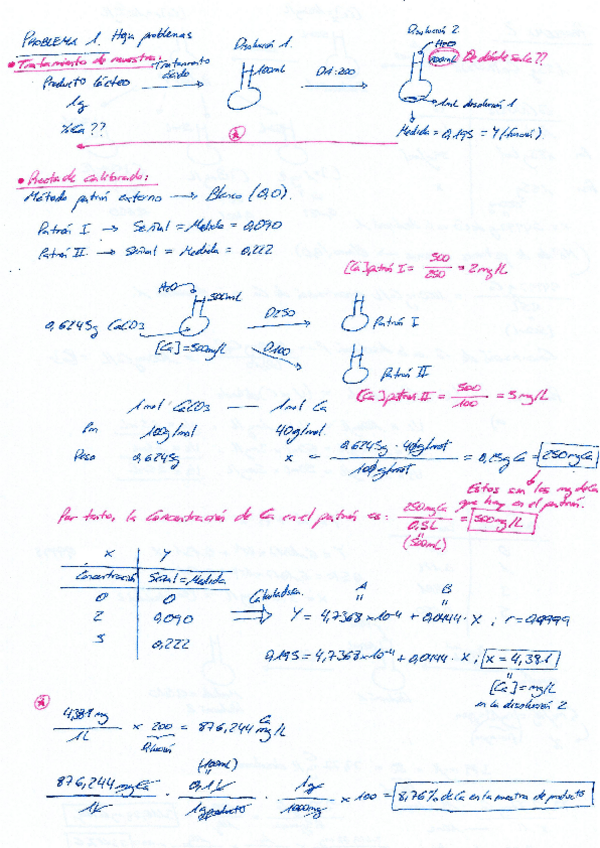 PROBLEMA 1. Hoja problemas
• Tratamiento de muestra:
Tratamiento ácido
Disolución 1.
Disolución 2
Producto lácteo
100ml
Dil: 200
H2O
100ml De dónde sale??
1g
1ml disolución 1
%Ca ??
Medida = 0,195 = Y (función)
• Recta de calibrado:
Método patrón externo → Blanco (0,0).
Patrón I → Señal = Medida = 0,090
Patrón II → Señal = Medida = 0,222
[Ca] patrón I = 500/250 = 2 mg/L
H2O
500ml
0,6245g CaCO3
D250
Patrón I
[Ca] = 500mg/L
D100
Patrón II
[Ca] patrón II = 500/100 = 5 mg/L
1 mol CaCO3 — 1 mol Ca
Pm 100g/mol 40g/mol
Peso 0,6245g x = 0,6245g · 40g/mol / 100g/mol = 0,25g Ca = 250mg Ca
Estos son los mg de Ca que hay en el patrón.
Por tanto, la concentración de Ca en el patrón es: 250mg Ca / 0,5L = 500mg/L
(500ml)
X Y
Concentración Señal = Medida
0 0
2 0,090
5 0,222
Calculadora
A B
Y = 4,7368x10-4 + 0,0444 · X ; r = 0,9999
0,195 = 4,7368x10-4 + 0,0444 · X ; x = 4,381
[Ca] = mg/L
en la disolución 2
4,381 mg / 1L x 200 = 876,244 mg/L Ca
Dilución
(100ml)
876,244 mg Ca / 1L · 0,1L / 1g producto · 1g / 1000mg x 100 = 8,76% de Ca en la muestra de producto